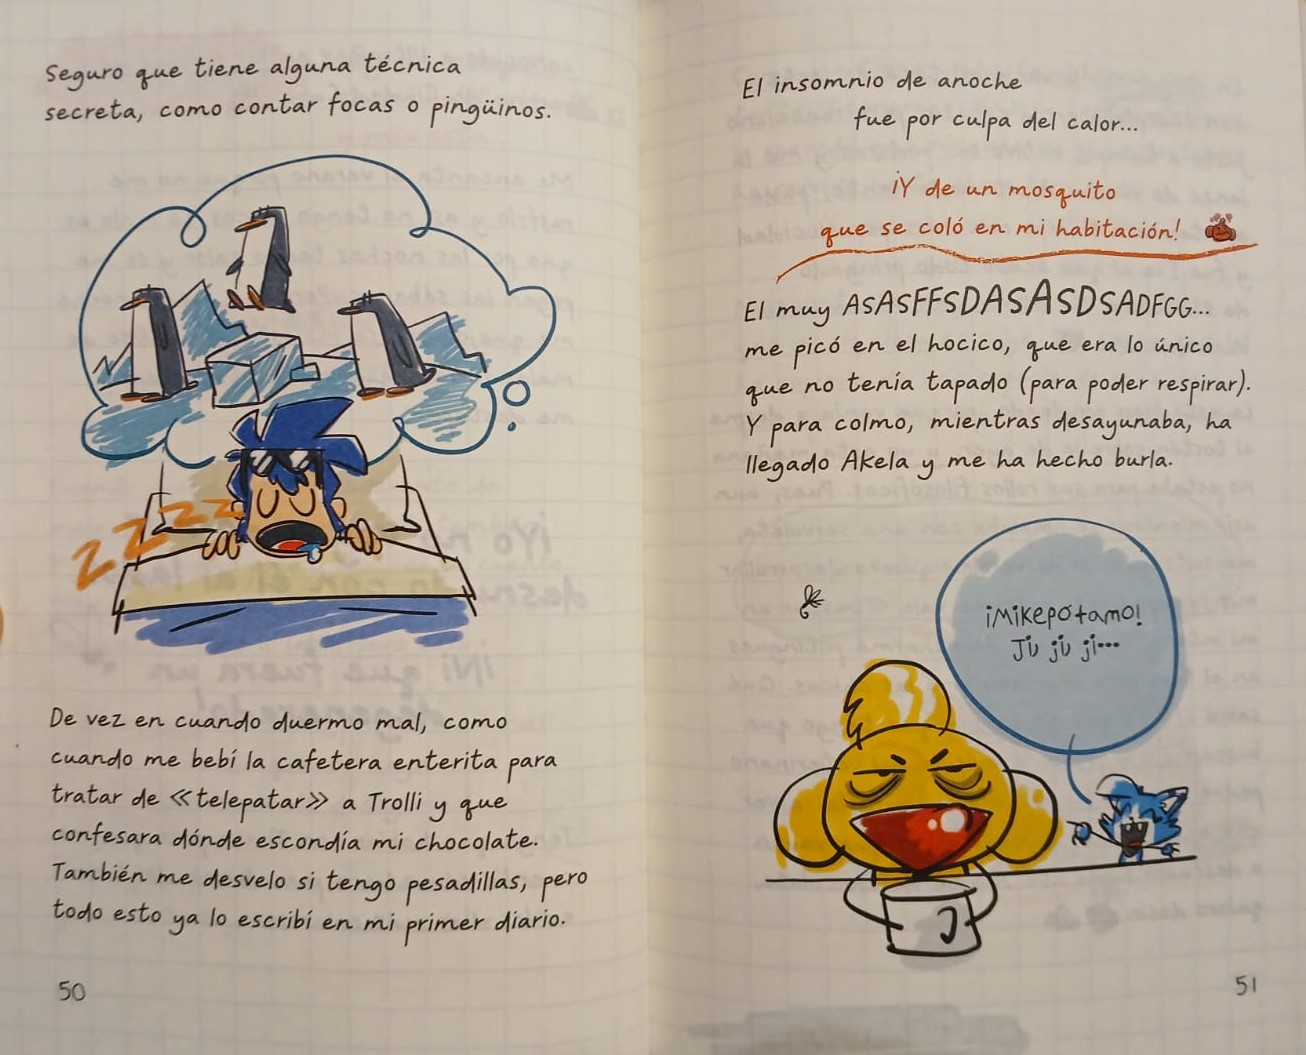 Seguro que tiene alguna técnica
secreta, como contar focas o pingüinos.
ZZZZZ
De vez en cuando duermo mal, como
cuando me bebí la cafetera enterita para
tratar de «telepatar» a Trolli y que
confesara dónde escondía mi chocolate.
También me desvelo si tengo pesadillas, pero
todo esto ya lo escribí en mi primer diario.
50
El insomnio de anoche
fue por culpa del calor...
¡Y de un mosquito
que se coló en mi habitación!
El muy ASASFFSDASASDSADFGG...
me picó en el hocico, que era lo único
que no tenía tapado (para poder respirar).
Y para colmo, mientras desayunaba, ha
llegado Akela y me ha hecho burla.
¡Mikepótamo!
Ji, ji, ji...
51